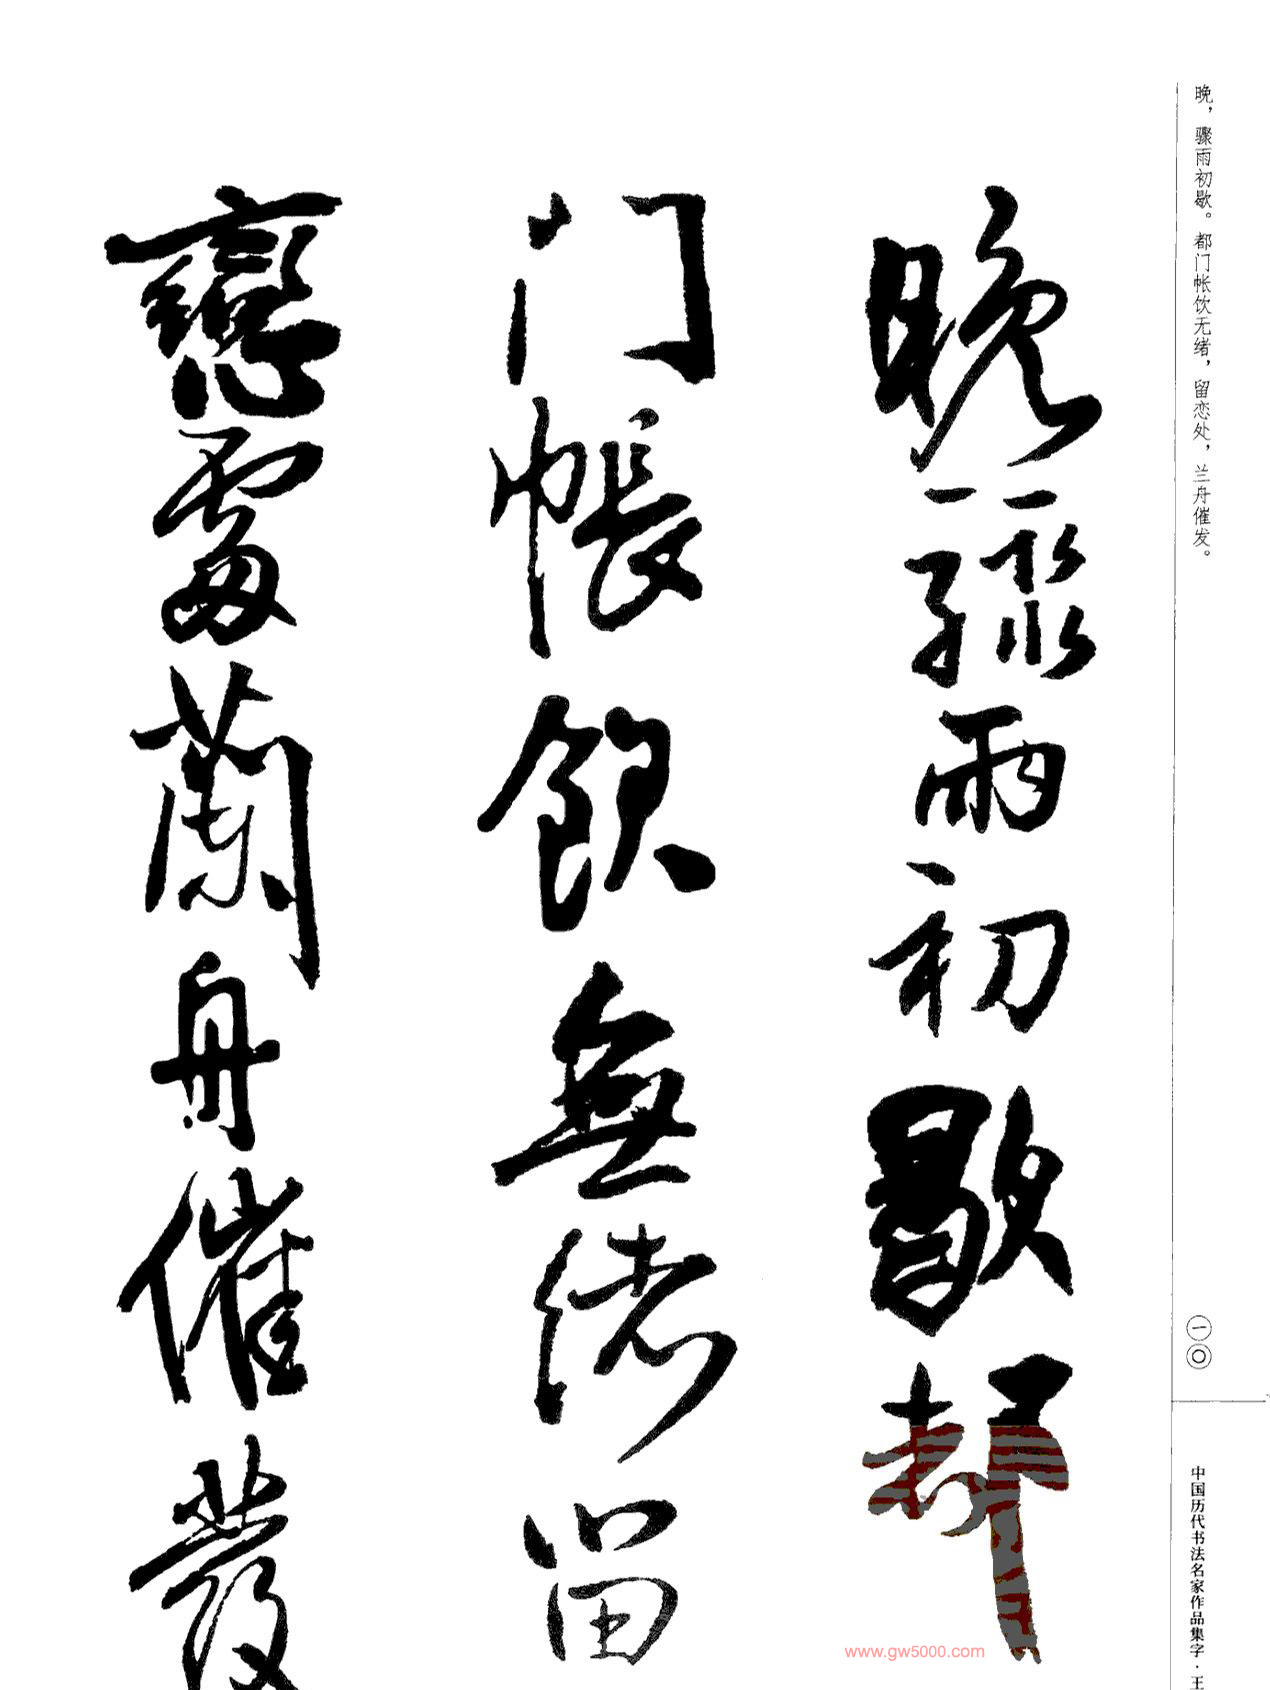 晚，骤雨初歇。都门帐饮无绪，留恋处，兰舟催发。
晚驟雨初歇都
门帳飲無緒留
戀處蘭舟催發
一〇
中国历代书法名家作品集字·王
www.gw5000.com